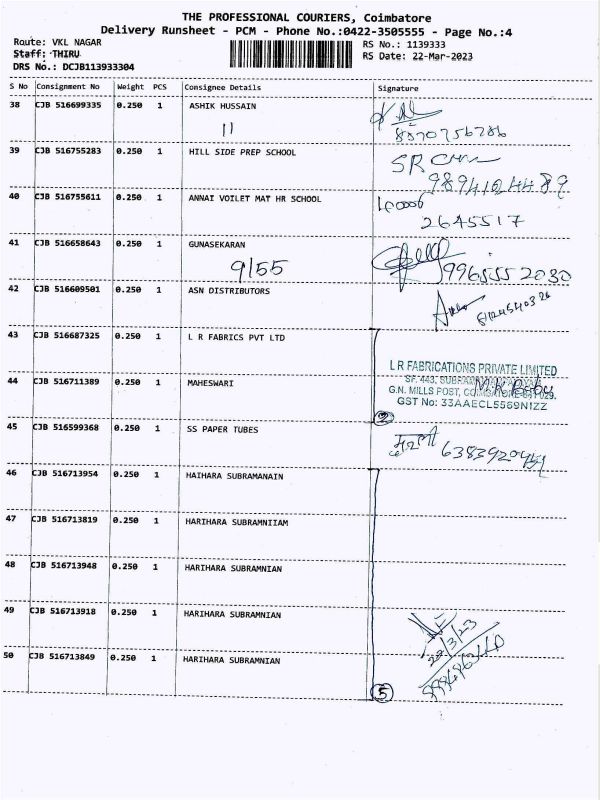 THE PROFESSIONAL COURIERS, Coimbatore
Delivery Runsheet - PCM - Phone No.:0422-3505555 - Page No.:4
Route: VKL NAGAR
RS No.: 1139333
Staff: THIRU
RS Date: 22-Mar-2023
DRS No.: DCJB113933304
S No Consignment No Weight PCS Consignee Details Signature
38 CJB 516699335 0.250 1 ASHIK HUSSAIN
11
8870756786
39 CJB 516755283 0.250 1 HILL SIDE PREP SCHOOL
40 CJB 516755611 0.250 1 ANNAI VOILET MAT HR SCHOOL
2645517
41 CJB 516658643 0.250 1 GUNASEKARAN
9/55 9965552030
42 CJB 516609501 0.250 1 ASN DISTRIBUTORS
43 CJB 516687325 0.250 1 L R FABRICS PVT LTD
L R FABRICATIONS PRIVATE LIMITED
44 CJB 516711389 0.250 1 MAHESWARI
SF. 443,
G.N. MILLS POST, COIMBATORE-641 029.
GST No: 33AAECL5569N1ZZ
2
45 CJB 516599368 0.250 1 SS PAPER TUBES
46 CJB 516713954 0.250 1 HAIHARA SUBRAMANAIN
47 CJB 516713819 0.250 1 HARIHARA SUBRAMNIIAM
48 CJB 516713948 0.250 1 HARIHARA SUBRAMNIAN
49 CJB 516713918 0.250 1 HARIHARA SUBRAMNIAN
22/3/23
50 CJB 516713849 0.250 1 HARIHARA SUBRAMNIAN
5